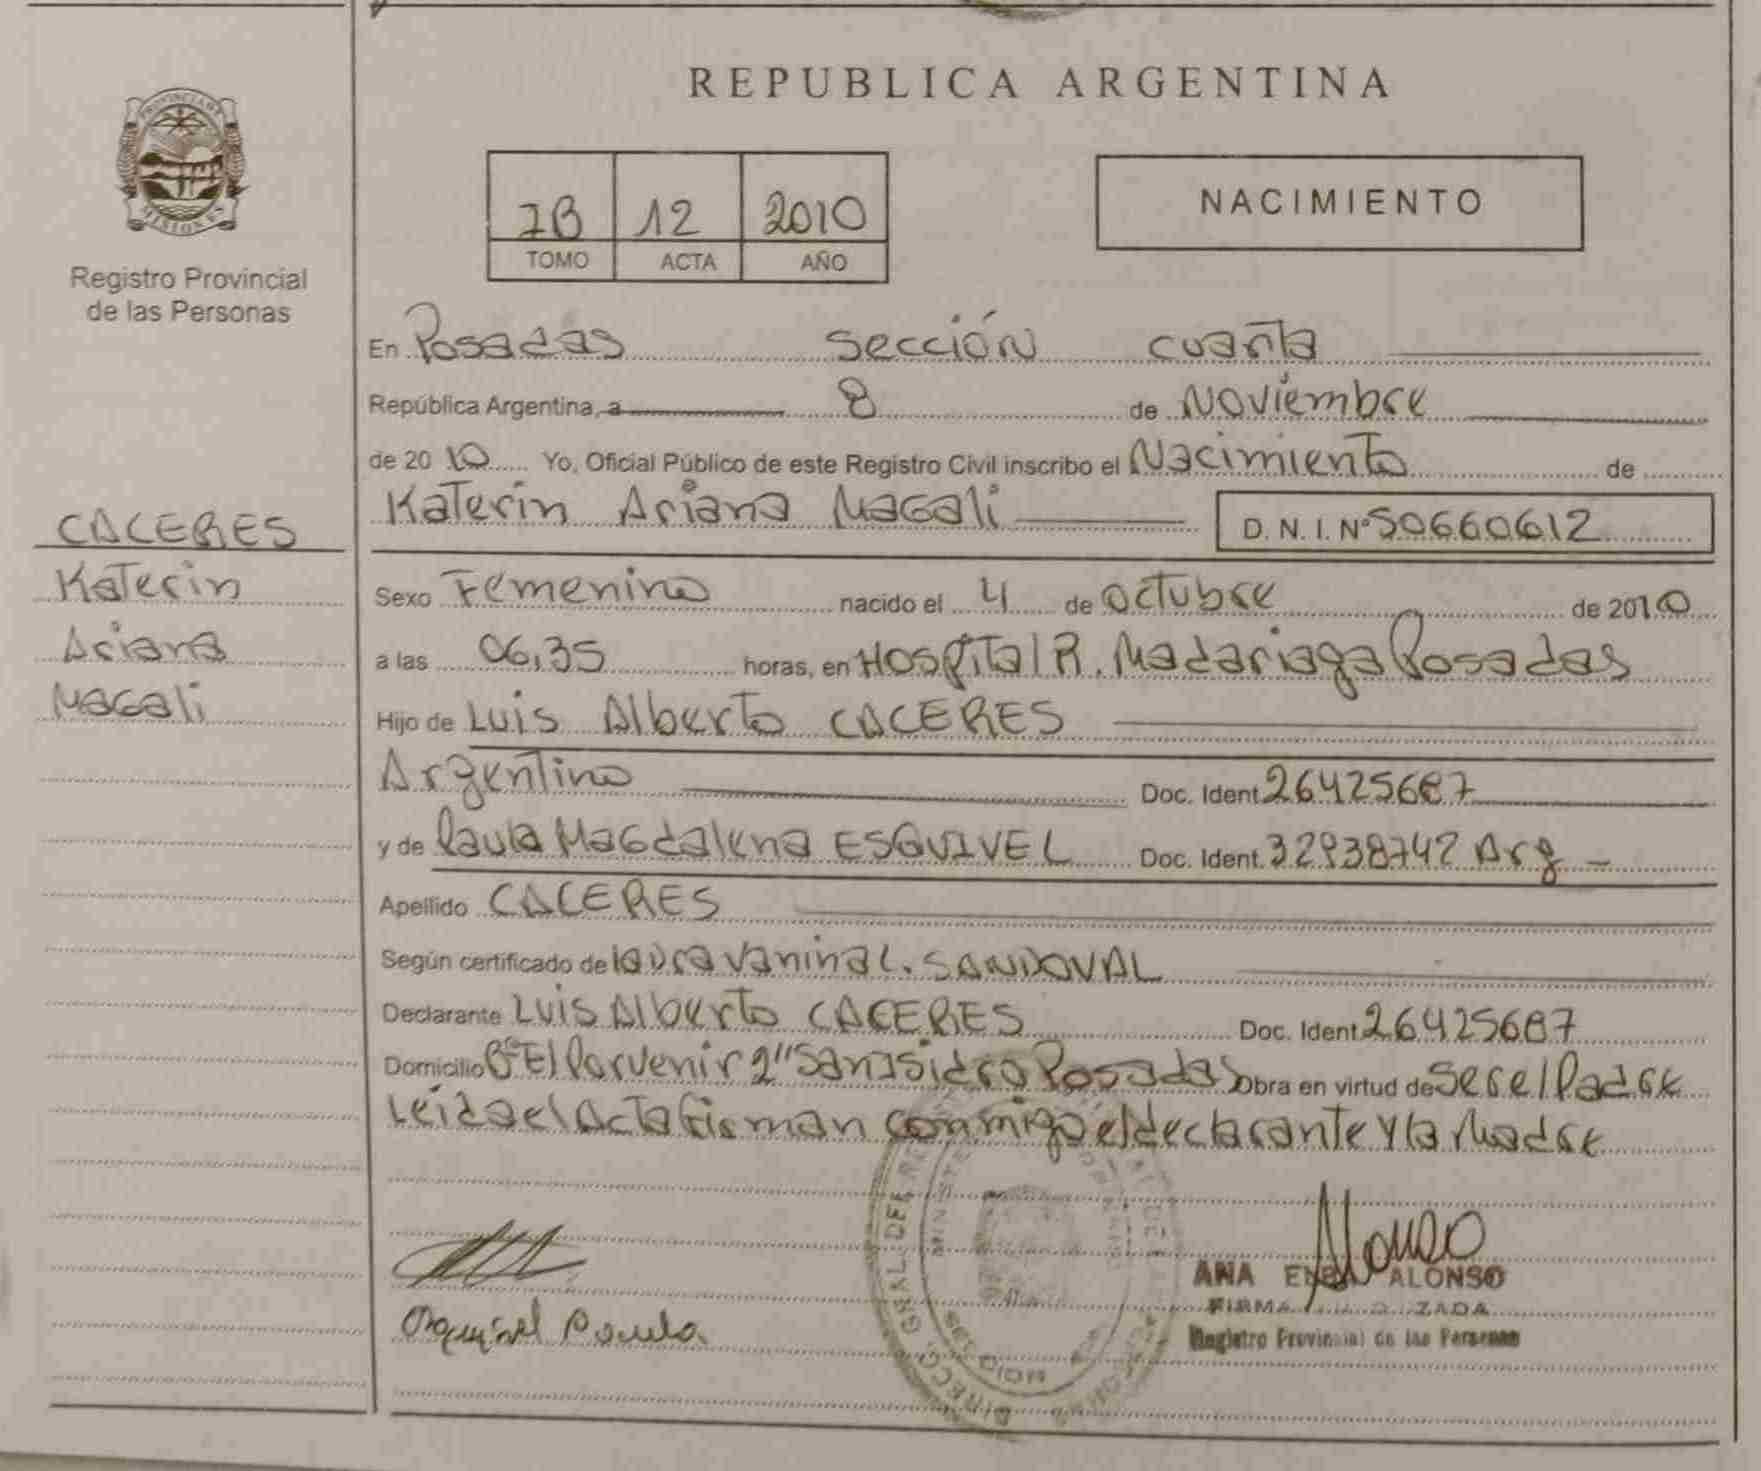 REPUBLICA ARGENTINA
PROVINCIA DE
MISIONES
Registro Provincial
de las Personas
12 2010
TOMO ACTA AÑO
NACIMIENTO
En Posadas sección cuarta
República Argentina, a 8 de Noviembre
de 2010 Yo, Oficial Público de este Registro Civil inscribo el Nacimiento de
Katerin Ariana Magali D. N. I. Nº 50660612
CACERES
Katerin
Ariana
Magali
Sexo Femenino nacido el 4 de octubre de 2010
a las 06,35 horas, en Hospital R. Madariaga Posadas
Hijo de Luis Alberto CACERES
Argentino Doc. Ident. 26425687
y de Paula Magdalena ESQUIVEL Doc. Ident. 32938742 Arg
Apellido CACERES
Según certificado de laura vanina C. SANDOVAL
Declarante Luis Alberto CACERES Doc. Ident. 26425687
Domicilio Bº El Porvenir 2" San Isidro Posadas Obra en virtud de ser el Padre
Leida el Acta firman conmigo el declarante y la Madre
DIRECC. GRAL. DEL
MINISTE
ANA ALONSO
FIRMA
Registro Provincial de las Personas
Esquivel Paula